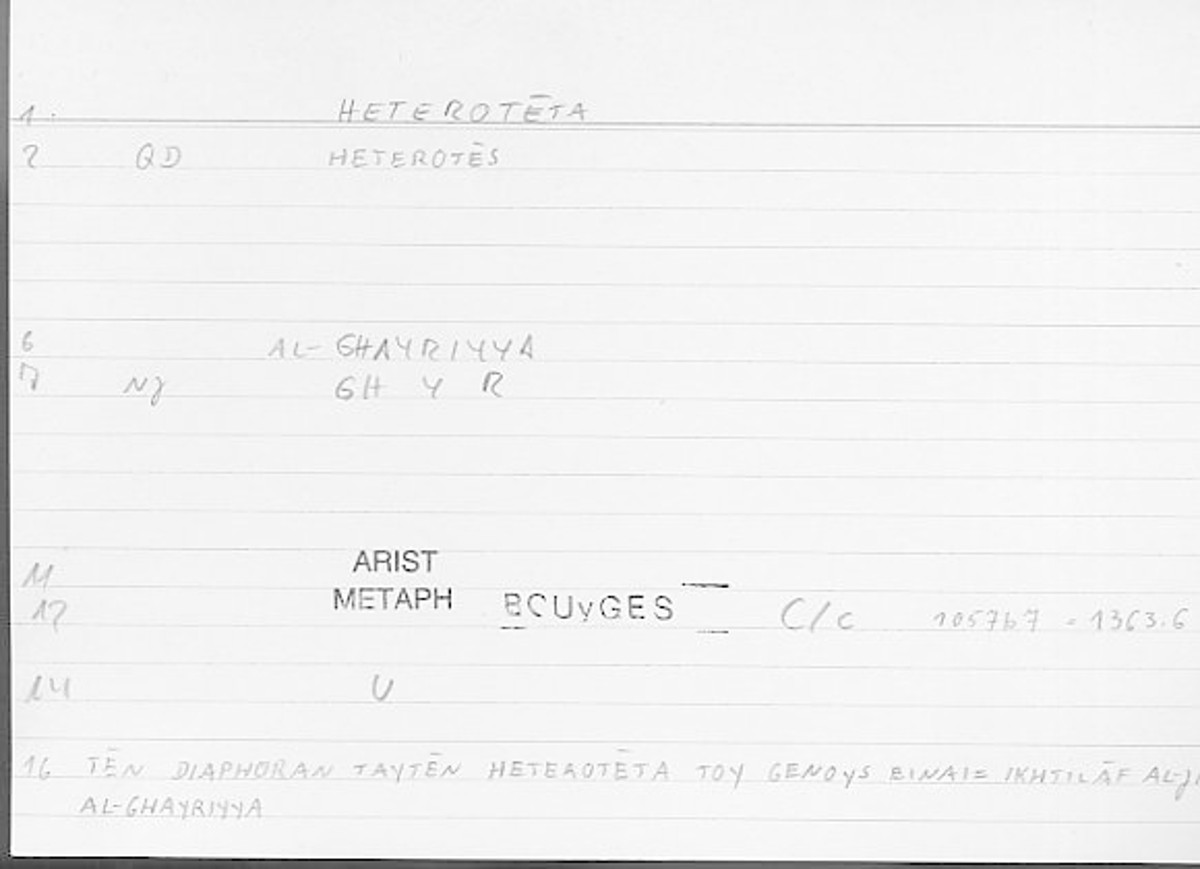 1. HETEROTĒTA
2 QD HETEROTĒS
6 AL-GHAYRIYYA
7 NJ GH Y R
11 ARIST
12 METAPH BOUyGES C/c 1057b7 = 1363.6
14 U
16 TĒN DIAPHORAN TAYTĒN HETEROTĒTA TOY GENOYS EINAI= IKHTILĀF
AL-GHAYRIYYA